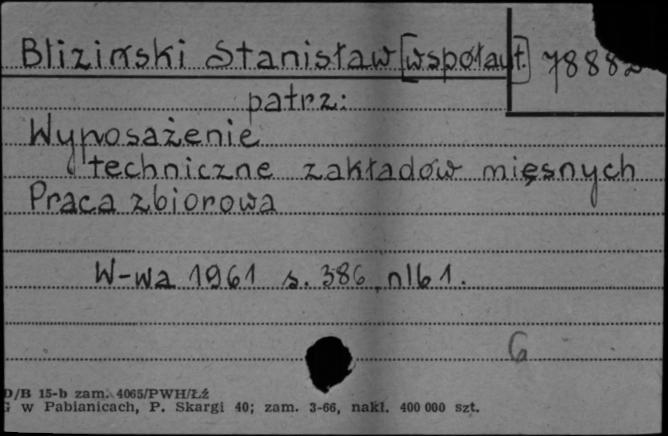 Bliziński Stanisław [współaut.] 7888
patrz:
Wyposażenie
techniczne zakładów mięsnych
Praca zbiorowa
W-wa 1961 s. 386, nlb 1.
6
D/B 15-b zam. 4065/PWH/Łź
G w Pabianicach, P. Skargi 40; zam. 3-66, nakł. 400 000 szt.